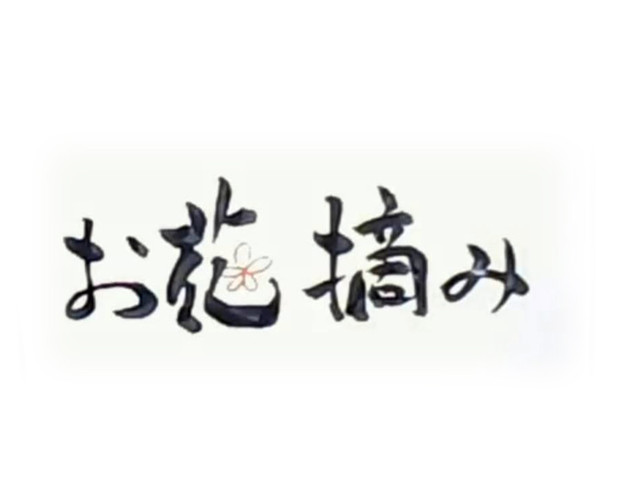 お花摘み